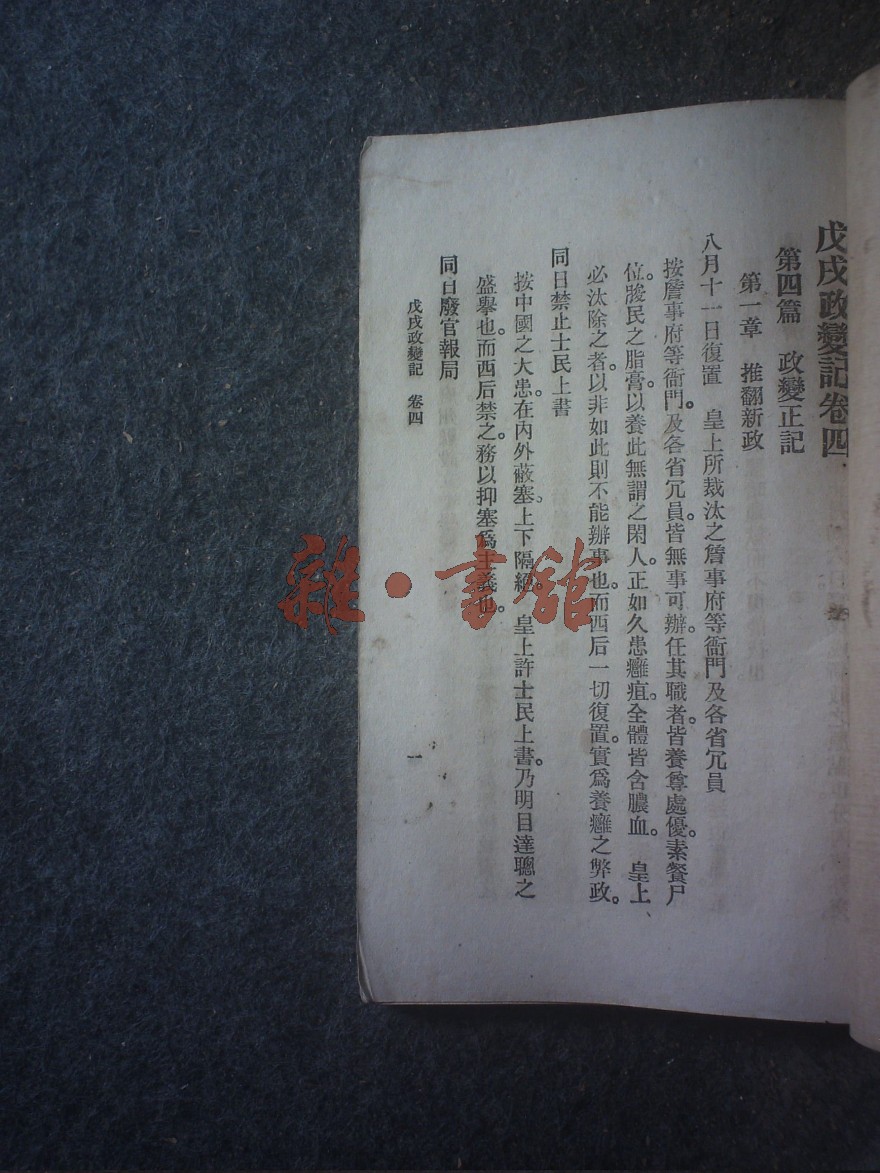 戊戌政變記卷四
第四篇　政變正記
第一章　推翻新政
八月十一日復置　皇上所裁汰之詹事府等衙門及各省冗員
按詹事府等衙門。及各省冗員。皆無事可辦。任其職者。皆養尊處優。素餐尸
位。朘民之脂膏。以養此無謂之閑人。正如久患癰疽。全體皆含膿血。　皇上
必汰除之者。以非如此則不能辦事也。而西后一切復置。實爲養癰之弊政。
同日禁止士民上書
按中國之大患。在內外蔽塞。上下隔絕。　皇上許士民上書。乃明目達聰之
盛擧也。而西后禁之。務以抑塞爲主義也。
同日廢官報局
戊戌政變記　卷四
一
雜·書舘